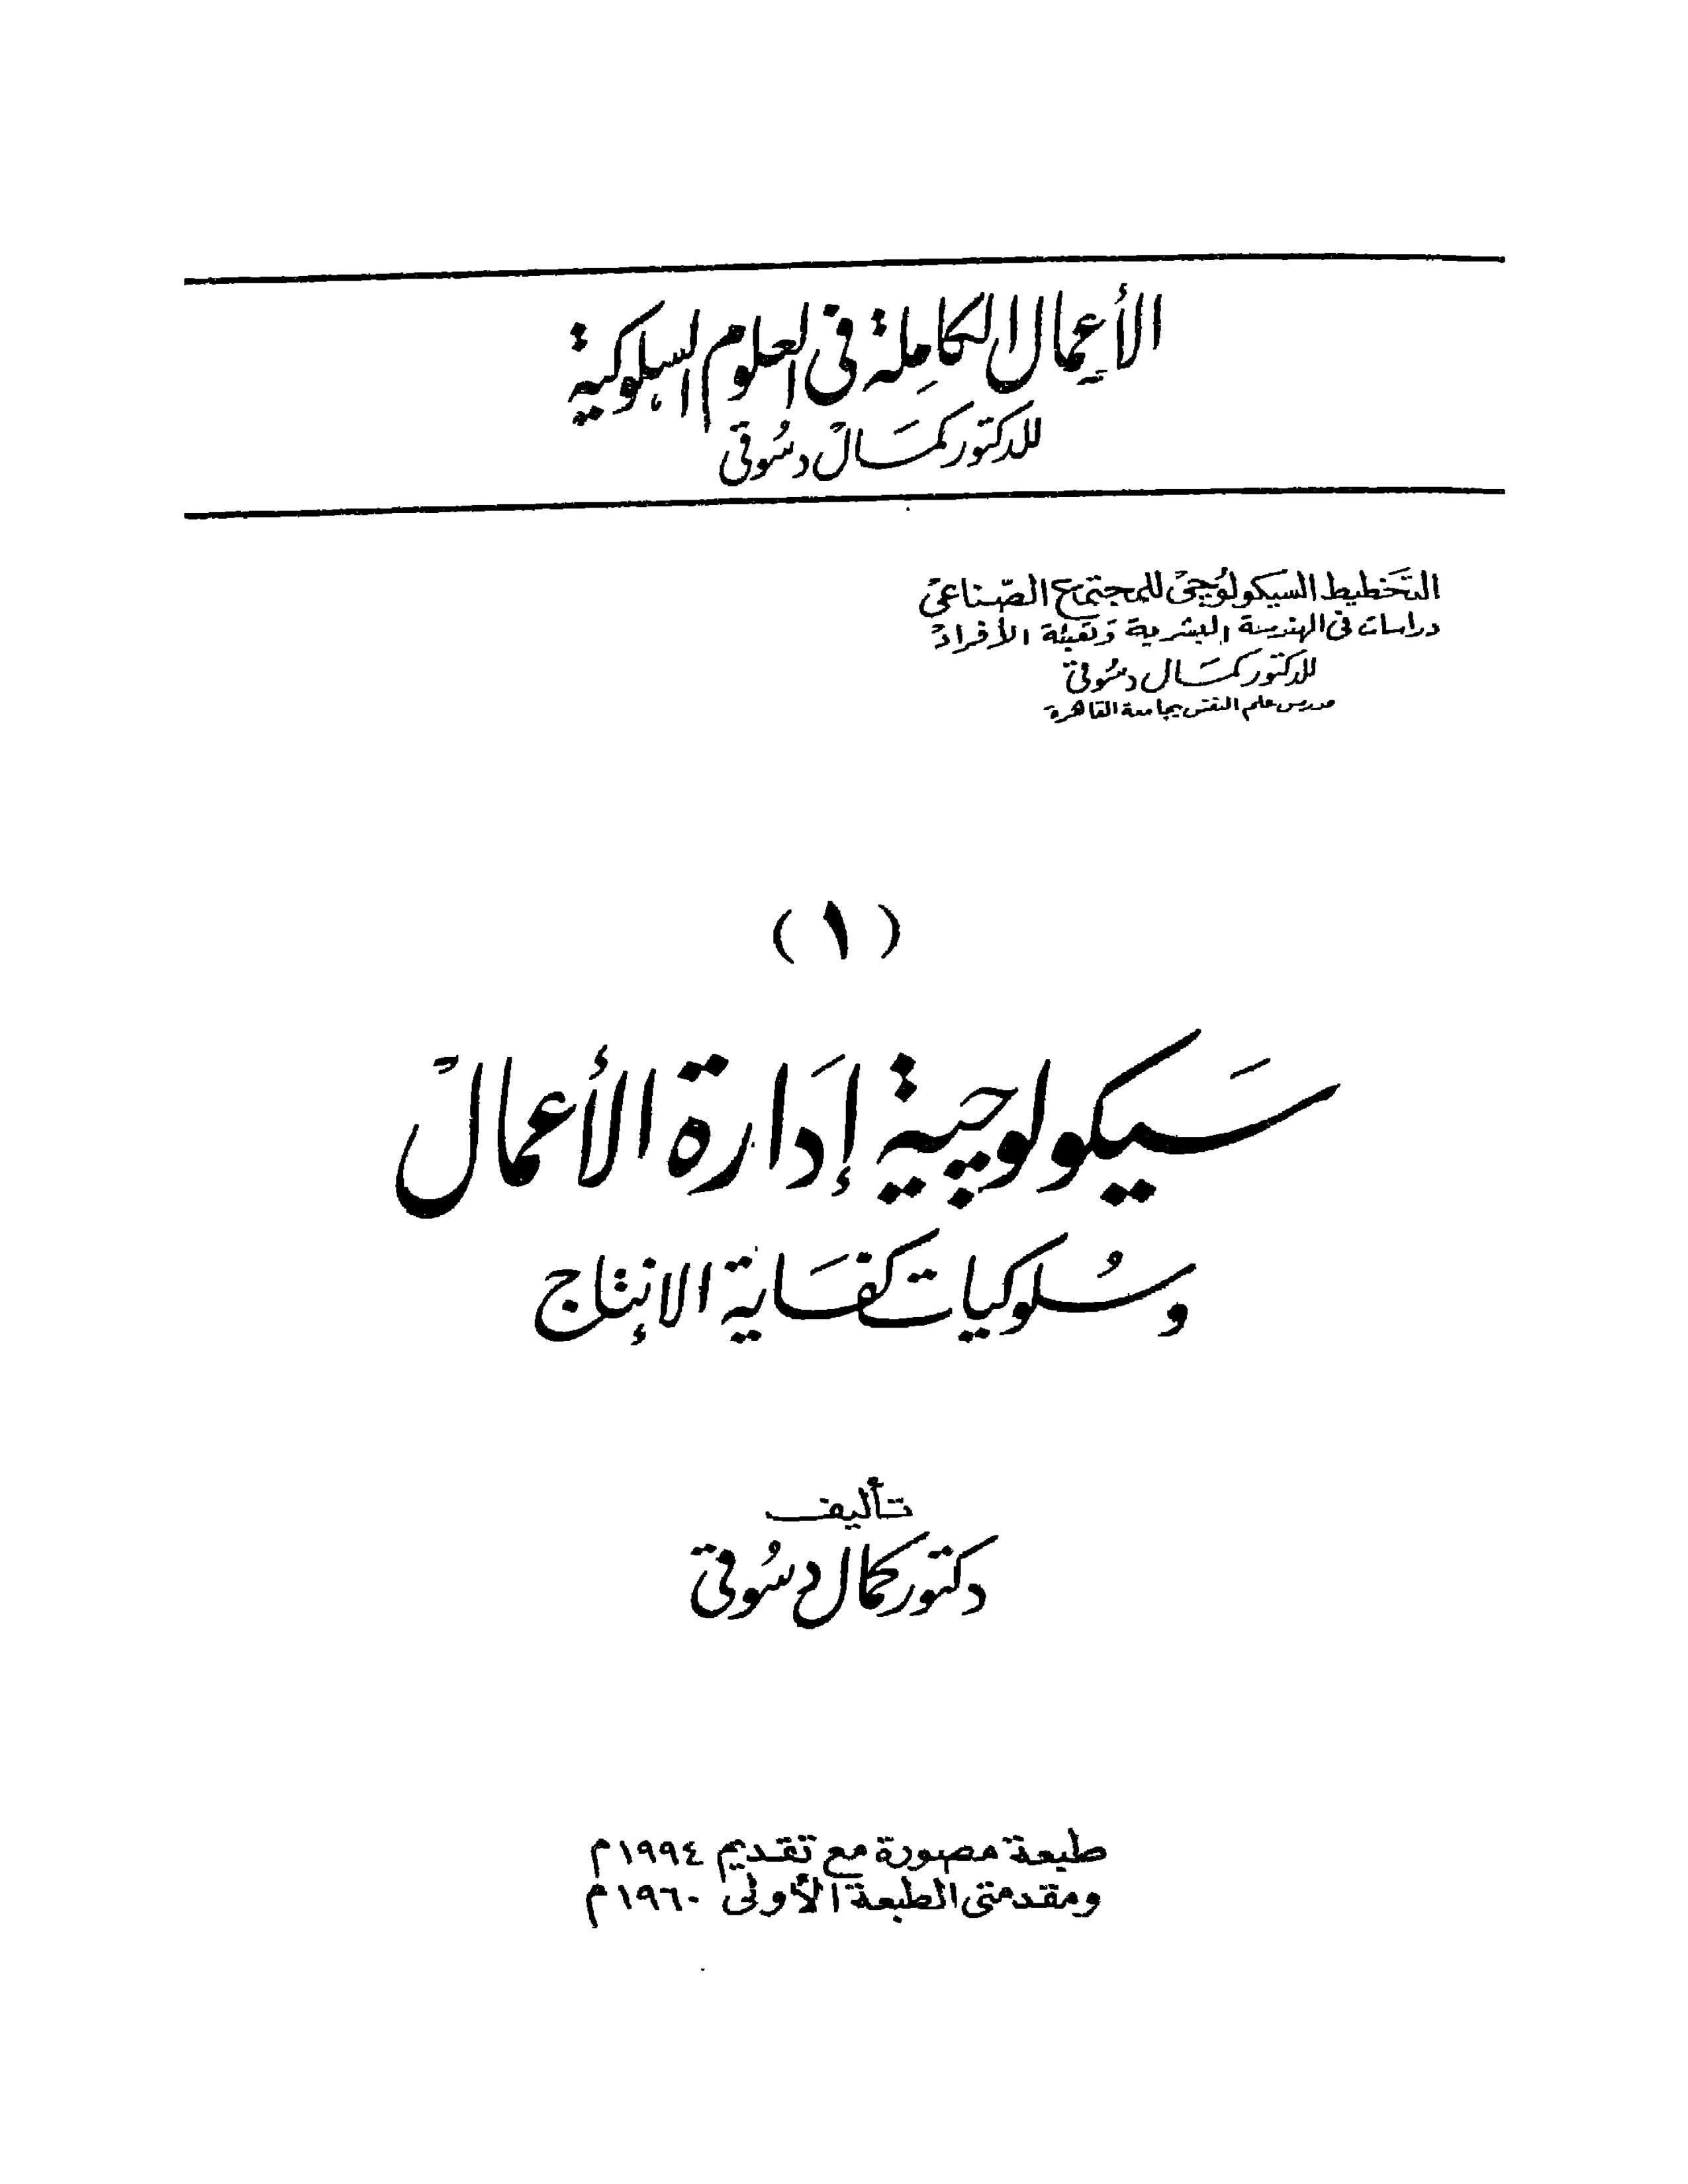 الأعمال الكاملة فى العلوم السلوكية
للدكتور كمال دسوقى
التخطيط السيكولوچى للمجتمع الصناعى
دراسات فى الهندسة البشرية وتعبئة الأفراد
للدكتور كمال دسوقى
مدرس علم النفس بجامعة القاهرة
(١)
سيكولوچية إدارة الأعمال
وسلوكيات كفاية الإنتاج
تأليف
دكتور كمال دسوقى
طبعة مصورة مع تقديم ١٩٩٤م
ومقدمتى الطبعة الأولى ١٩٦٠م